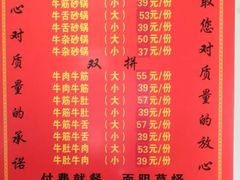 牛筋砂锅（小）39元/份
牛舌砂锅（大）53元/份
牛舌砂锅（小）39元/份
牛杂砂锅（大）50元/份
牛杂砂锅（小）37元/份
双 拼
牛肉牛筋（大）55元/份
牛肉牛筋（小）39元/份
牛筋牛肚（大）57元/份
牛筋牛肚（小）39元/份
牛筋牛舌（大）57元/份
牛筋牛舌（小）39元/份
牛肚牛肉（大）55元/份
牛肚牛肉（小）39元/份
心对质量的承诺
取您对质量的放心
付费就餐 面明莫怪